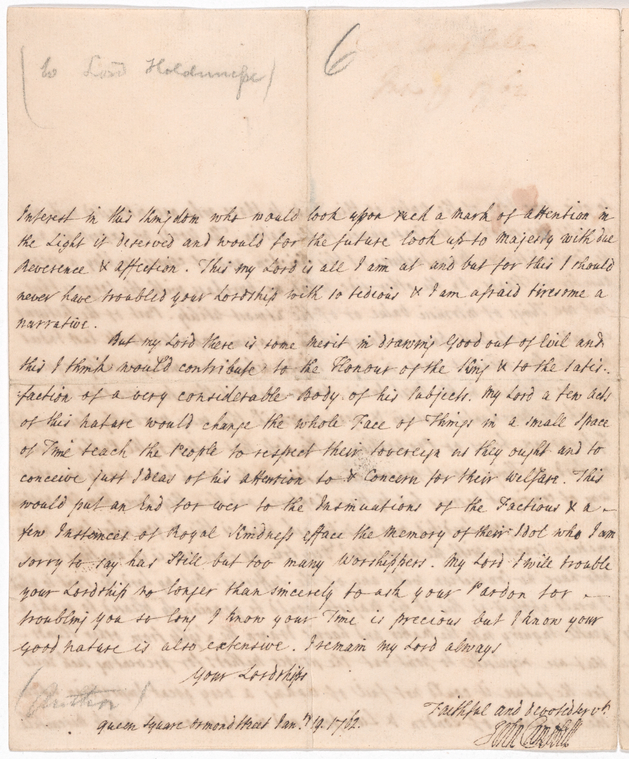 (to Lord Holdernesse)
6
Interest in this Kingdom who would look upon such a mark of attention in
the Light it deserved and would for the future look up to Majesty with due
Reverence & affection. This my Lord is all I am at and but for this I should
never have troubled your Lordship with so tedious & I am afraid tiresome a
narrative.
But my Lord there is some merit in drawing Good out of Evil and
this I think would contribute to the Honour of the King & to the satis-
faction of a very considerable Body of his Subjects. My Lord a few acts
of this nature would change the whole Face of Things in a small Space
of Time teach the People to respect their Sovereign as they ought and to
conceive just Ideas of his attention to & Concern for their Welfare. This
would put an End for ever to the Insinuations of the Factious & a
few Instances of Royal Kindness efface the Memory of their Idol who I am
sorry to say has still but too many Worshippers. My Lord I will trouble
your Lordship no longer than sincerely to ask your Pardon for
troubling you so long I know your Time is precious but I know your
Good nature is also extensive. I remain my Lord always
Your Lordships
Faithful and devoted servt.
Queen Square Ormond Street Jany. 19. 1762.
John Campbell